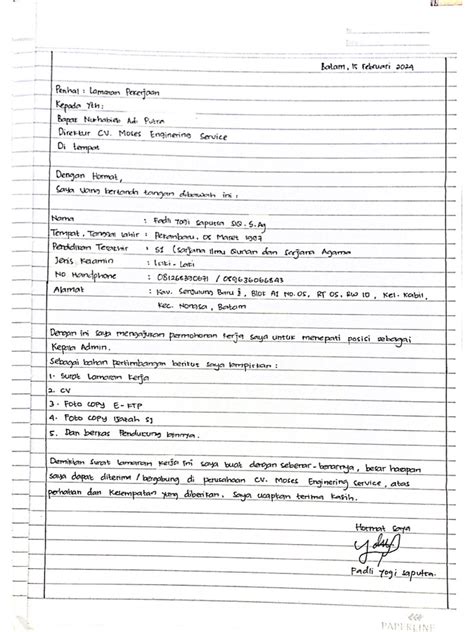 Batam, 15 Februari 2024
Perihal : Lamaran Pekerjaan
Kepada Yth:
Bapak Nurhabieb Adi Putra
Direktur CV. Moses Enginering Service
Di tempat
Dengan Hormat,
Saya yang bertanda tangan dibawah ini :
Nama : Fadli Yogi Saputra SQ. S.Ag
Tempat, Tanggal Lahir : Pekanbaru, 05 Maret 1997
Pendidikan Terakhir : S1 (Sarjana Ilmu Quran dan Sarjana Agama
Jenis Kelamin : Laki-Laki
No Handphone :
Alamat : Kav. Sambung Baru j, Blok A1 No.05, RT 05, RW 10, Kel. Kabil,
Kec. Nongsa, Batam
Dengan ini saya mengajukan permohonan kerja saya untuk menepati posisi sebagai
Kepala Admin.
Sebagai bahan pertimbangan berikut saya lampirkan :
1. Surat Lamaran Kerja
2. CV
3. Foto copy E-KTP
4. Foto copy Ijazah S1
5. Dan berkas Pendukung lainnya.
Demikian surat lamaran kerja ini saya buat dengan sebenar-benarnya, besar harapan
saya dapat diterima / bergabung di perusahaan CV. Moses Enginering Service, atas
perhatian dan kesempatan yang diberikan. Saya ucapkan terima kasih.
Hormat saya
Fadli Yogi Saputra.
PAPERLINE